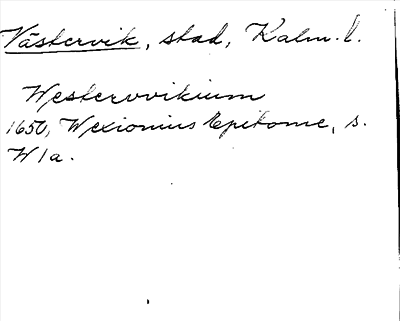 Västervik, stad, Kalm. l.
Westervvikium
1650, Wexionius Epitome, s.
W1a.